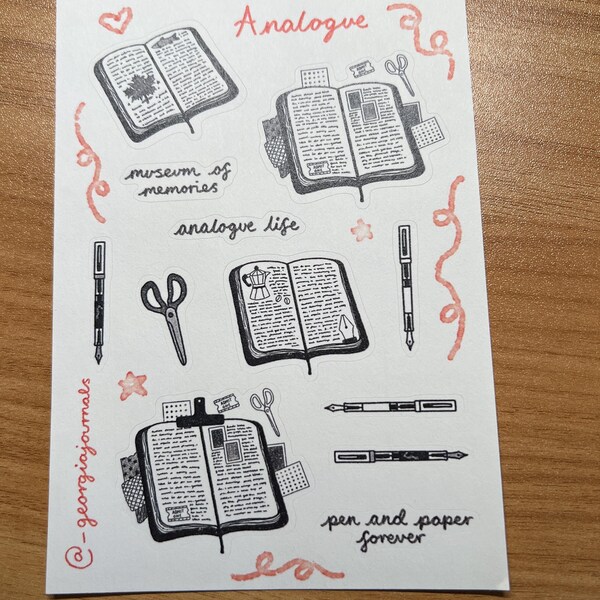 Analogue
museum of
memories
analogue life
@-georgiajournals
pen and paper
forever